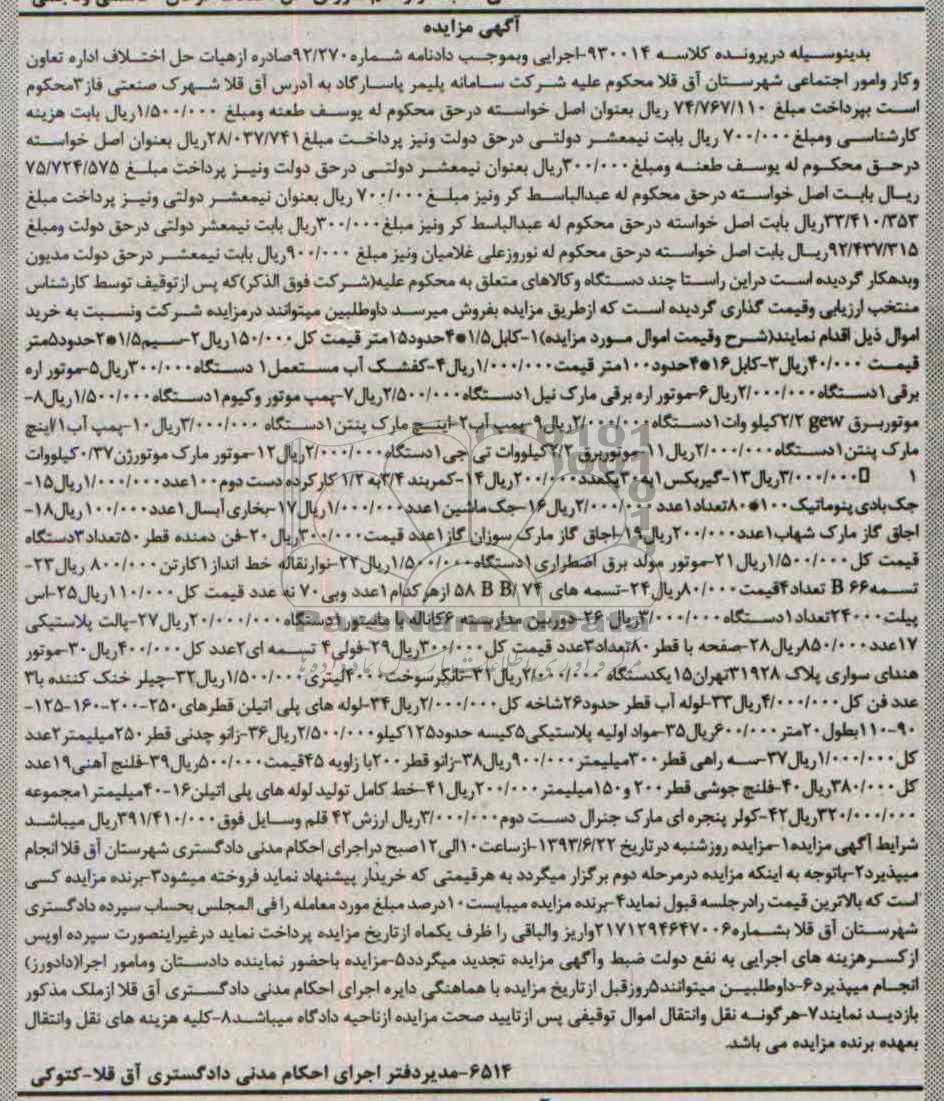 آگهی مزایده
بدینوسیله درپرونده کلاسه ۹۳۰۰۱۴-اجرایی وبموجب دادنامه شماره ۹۲/۲۷۰صادره ازهیات حل اختلاف اداره تعاون
وکار وامور اجتماعی شهرستان آق قلا محکوم علیه شرکت سامانه پلیمر پاسارگاد به آدرس آق قلا شهرک صنعتی فاز۳محکوم
است بپرداخت مبلغ ۷۴/۷۶۷/۱۱۰ ریال بعنوان اصل خواسته درحق محکوم له یوسف طعنه ومبلغ ۱/۵۰۰/۰۰۰ریال بابت هزینه
کارشناسی ومبلغ ۷۰۰/۰۰۰ ریال بابت نیمعشر دولتی درحق دولت ونیز پرداخت مبلغ۲۸/۰۳۷/۷۴۱ریال بعنوان اصل خواسته
درحق محکوم له یوسف طعنه ومبلغ ۳۰۰/۰۰۰ریال بعنوان نیمعشر دولتی درحق دولت ونیز پرداخت مبلغ ۷۵/۷۲۴/۵۷۵
ریال بابت اصل خواسته درحق محکوم له عبدالباسط کر ونیز مبلغ ۷۰۰/۰۰۰ ریال بعنوان نیمعشر دولتی ونیز پرداخت مبلغ
۳۳/۴۱۰/۳۵۳ریال بابت اصل خواسته درحق محکوم له عبدالباسط کر ونیز مبلغ ۳۰۰/۰۰۰ریال بابت نیمعشر دولتی درحق دولت ومبلغ
۹۲/۴۳۷/۳۱۵ریال بابت اصل خواسته درحق محکوم له نوروزعلی غلامیان ونیز مبلغ ۹۰۰/۰۰۰ریال بابت نیمعشر درحق دولت مدیون
وبدهکار گردیده است دراین راستا چند دستگاه وکالاهای متعلق به محکوم علیه(شرکت فوق الذکر)که پس ازتوقیف توسط کارشناس
منتخب ارزیابی وقیمت گذاری گردیده است که ازطریق مزایده بفروش میرسد داوطلبین میتوانند درمزایده شرکت ونسبت به خرید
اموال ذیل اقدام نمایند(شرح وقیمت اموال مورد مزایده)۱-کابل۱/۵*۴حدود۱۵متر قیمت کل۱۵۰/۰۰۰ریال۲-سیم۱/۵*۲حدود۵متر
قیمت ۴۰/۰۰۰ریال۳-کابل۱۶*۴حدود۱۰۰متر قیمت۱/۰۰۰/۰۰۰ریال۴-کفشک آب مستعمل۱ دستگاه۳۰۰/۰۰۰ریال۵-موتور اره
برقی۱دستگاه۲/۰۰۰/۰۰۰ریال۶-موتور اره برقی مارک نیل۱دستگاه۲/۵۰۰/۰۰۰ریال۷-پمپ موتور وکیوم۱دستگاه۱/۵۰۰/۰۰۰ریال۸-
موتوربرق gew ۲/۲کیلو وات۱دستگاه۲/۰۰۰/۰۰۰ریال۹-پمپ آب۲-اینچ مارک پنتن۱دستگاه ۳/۰۰۰/۰۰۰ریال۱۰-پمپ آب۱اینچ
مارک پنتن۱دستگاه۲/۰۰۰/۰۰۰ریال۱۱-موتوربرق۲/۲کیلووات تی جی۱دستگاه۲/۰۰۰/۰۰۰ریال۱۲-موتور مارک موتورژن۰/۳۷کیلووات
۱ ۳/۰۰۰/۰۰۰ریال۱۳-گیربکس۱به۳۰یکعدد۲۰۰/۰۰۰ریال۱۴-کمربند ۳/۴به ۱/۲ کارکرده دست دوم۱۰۰عدد۱/۰۰۰/۰۰۰ریال۱۵-
جک بادی پنوماتیک۱۰۰*۸۰تعداد۱عدد ۲/۰۰۰/۰۰۰ریال۱۶-جک ماشین۱عدد۱/۰۰۰/۰۰۰ریال۱۷-بخاری آبسال۱عدد۱۰۰/۰۰۰ریال۱۸-
اجاق گاز مارک شهاب۱عدد۲۰۰/۰۰۰ریال۱۹-اجاق گاز مارک سوزان گاز۱عدد قیمت۳۰۰/۰۰۰ریال۲۰-فن دمنده قطر۵۰تعداد۳دستگاه
قیمت کل۱/۵۰۰/۰۰۰ریال۲۱-موتور مولد برق اضطراری۱دستگاه۱/۵۰۰/۰۰۰ریال۲۲-نوارنقاله خط انداز۱کارتن۸۰۰/۰۰۰ ریال۲۳-
تسمه B ۶۶ تعداد۴قیمت۸۰/۰۰۰ریال۲۴-تسمه های B B/ ۷۴ ۵۸ ازهرکدام۱عدد وبی۷۰ نه عدد قیمت کل۱۱۰/۰۰۰ریال۲۵-اس
پیلت۲۴۰۰۰تعداد۱دستگاه۳/۰۰۰/۰۰۰ریال۲۶-دوربین مداربسته ۶کاناله با مانیتور۱دستگاه۲۰/۰۰۰/۰۰۰ریال۲۷-پالت پلاستیکی
۱۷عدد۸۵۰/۰۰۰ریال۲۸-صفحه با قطر۸۰تعداد۲عدد قیمت کل۳۰۰/۰۰۰ریال۲۹-فولی۴ تسمه ای۲عدد کل۴۰۰/۰۰۰ریال۳۰-موتور
هندای سواری پلاک ۳۱۹۲۸تهران۱۵یکدستگاه ۲/۰۰۰/۰۰۰ریال۳۱-تانکرسوخت۴۰۰۰لیتری۱/۵۰۰/۰۰۰ریال۳۲-چیلر خنک کننده با۳
عدد فن کل۴/۰۰۰/۰۰۰ریال۳۳-لوله آب قطر حدود۲۶شاخه کل۲/۰۰۰/۰۰۰ریال۳۴-لوله های پلی اتیلن قطرهای۲۵۰-۲۰۰-۱۶۰-۱۲۵-
۹۰-۱۱۰بطول۲۰متر۶۰۰/۰۰۰ریال۳۵-مواد اولیه پلاستیکی۵کیسه حدود۱۲۵کیلو۲/۵۰۰/۰۰۰ریال۳۶-زانو چدنی قطر۲۵۰میلیمتر۲عدد
کل۱/۰۰۰/۰۰۰ریال۳۷-سه راهی قطر۳۰۰میلیمتر۹۰۰/۰۰۰ریال۳۸-زانو قطر۲۰۰با زاویه ۴۵قیمت۵۰۰/۰۰۰ریال۳۹-فلنج آهنی۱۹عدد
کل۳۸۰/۰۰۰ریال۴۰-فلنج جوشی قطر۲۰۰ و۱۵۰میلیمتر۲۰۰/۰۰۰ریال۴۱-خط کامل تولید لوله های پلی اتیلن۱۶-۴۰میلیمتر۱مجموعه
۳۲۰/۰۰۰/۰۰۰ریال۴۲-کولر پنجره ای مارک جنرال دست دوم۳/۰۰۰/۰۰۰ریال ارزش۴۲ قلم وسایل فوق۳۹۱/۴۱۰/۰۰۰ریال میباشد
شرایط آگهی مزایده۱-مزایده روزشنبه درتاریخ ۱۳۹۳/۶/۲۲-ازساعت۱۰الی۱۲صبح دراجرای احکام مدنی دادگستری شهرستان آق قلا انجام
میپذیرد۲-باتوجه به اینکه مزایده درمرحله دوم برگزار میگردد به هرقیمتی که خریدار پیشنهاد نماید فروخته میشود۳-برنده مزایده کسی
است که بالاترین قیمت رادرجلسه قبول نماید۴-برنده مزایده میبایست۱۰درصد مبلغ مورد معامله را فی المجلس بحساب سپرده دادگستری
شهرستان آق قلا بشماره۲۱۷۱۲۹۴۶۴۷۰۰۶واریز والباقی را ظرف یکماه ازتاریخ مزایده پرداخت نماید درغیراینصورت سپرده اوپس
ازکسرهزینه های اجرایی به نفع دولت ضبط وآگهی مزایده تجدید میگردد۵-مزایده باحضور نماینده دادستان ومامور اجرا(دادورز)
انجام میپذیرد۶-داوطلبین میتوانند۵روزقبل ازتاریخ مزایده با هماهنگی دایره اجرای احکام مدنی دادگستری آق قلا ازملک مذکور
بازدید نمایند۷-هرگونه نقل وانتقال اموال توقیفی پس ازتایید صحت مزایده ازناحیه دادگاه میباشد۸-کلیه هزینه های نقل وانتقال
بعهده برنده مزایده می باشد.
۶۵۱۴-مدیردفتر اجرای احکام مدنی دادگستری آق قلا-کتوکی
ParsNamadData